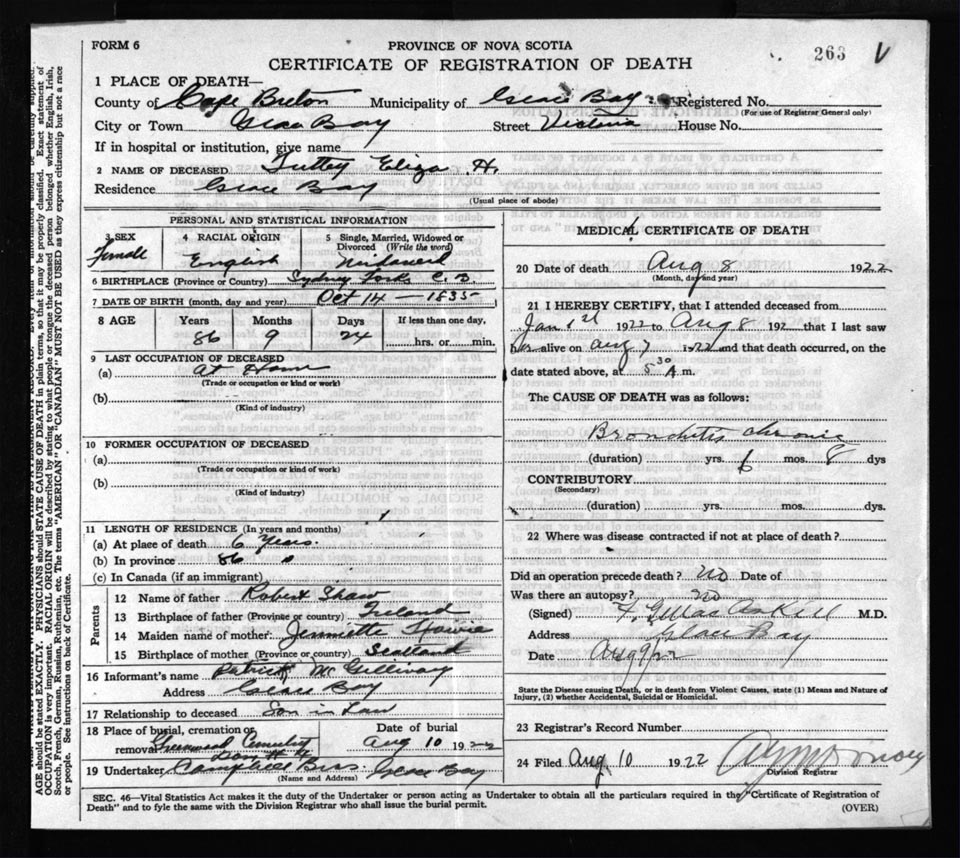 FORM 6
PROVINCE OF NOVA SCOTIA
263 V
CERTIFICATE OF REGISTRATION OF DEATH
1 PLACE OF DEATH—
County of Cape Breton Municipality of Glace Bay Registered No.
(For use of Registrar General only)
City or Town Glace Bay Street Victoria House No.
If in hospital or institution, give name
2 NAME OF DECEASED Eliza H.
Residence Glace Bay
(Usual place of abode)
PERSONAL AND STATISTICAL INFORMATION
3 SEX Female
4 RACIAL ORIGIN English
5 Single, Married, Widowed or Divorced (Write the word) Widowed
6 BIRTHPLACE (Province or Country) Sydney Forks C. B.
7 DATE OF BIRTH (month, day and year) Oct 14 — 1835
8 AGE Years Months Days If less than one day,
86 9 24 hrs. or min.
9 LAST OCCUPATION OF DECEASED
(a) At Home
(Trade or occupation or kind or work)
(b)
(Kind of industry)
10 FORMER OCCUPATION OF DECEASED
(a)
(Trade or occupation or kind of work)
(b)
(Kind of industry)
11 LENGTH OF RESIDENCE (In years and months)
(a) At place of death 6 Years.
(b) In province 86 "
(c) In Canada (if an immigrant)
Parents
12 Name of father Robert Shaw
13 Birthplace of father (Province or country) Ireland
14 Maiden name of mother
15 Birthplace of mother (Province or country) Scotland
16 Informant's name Patrick McGillivray
Address Glace Bay
17 Relationship to deceased Son in Law
18 Place of burial, cremation or removal Greenwood Cemetery
Date of burial Aug 10 1922
19 Undertaker Campbell Bros. Glace Bay
(Name and Address)
MEDICAL CERTIFICATE OF DEATH
20 Date of death Aug 8 1922
(Month, day and year)
21 I HEREBY CERTIFY, that I attended deceased from
Jan 1st 1922 to Aug 8 192 that I last saw
her alive on Aug 7 1922 and that death occurred, on the
date stated above, at 5 30 A.m.
The CAUSE OF DEATH was as follows:
Bronchitis chronic
(duration) yrs. 6 mos. 8 dys
CONTRIBUTORY
(Secondary)
(duration) yrs. mos. dys.
22 Where was disease contracted if not at place of death?
Did an operation precede death? no Date of
Was there an autopsy? no
(Signed) M.D.
Address Glace Bay
Date Aug 9/22
State the Disease causing Death, or in death from Violent Causes, state (1) Means and Nature of
Injury, (2) whether Accidental, Suicidal or Homicidal.
23 Registrar's Record Number
24 Filed Aug 10 1922
Division Registrar
SEC. 46—Vital Statistics Act makes it the duty of the Undertaker or person acting as Undertaker to obtain all the particulars required in the "Certificate of Registration of
Death" and to fyle the same with the Division Registrar who shall issue the burial permit.
(OVER)
AGE should be stated EXACTLY. PHYSICIANS should STATE CAUSE OF DEATH in plain terms, so that it may be properly classified. Exact statement of
OCCUPATION is very important. RACIAL ORIGIN will be described by stating to what people or tongue the deceased person belonged whether English, Irish,
Scotch, French, German, Russian, Ruthenian, etc. The terms "AMERICAN" OR "CANADIAN" MUST NOT BE USED as they express citizenship but not a race
or people. See instructions on back of Certificate.